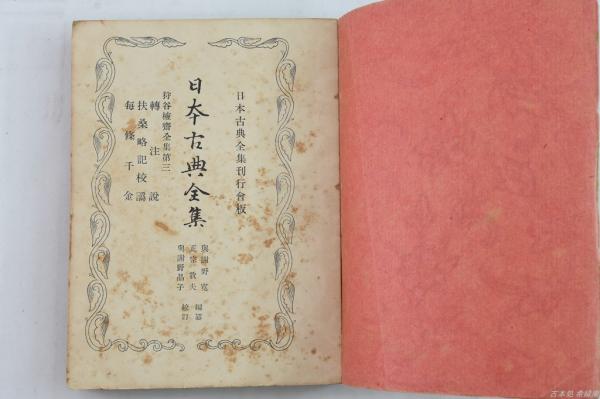 日本古典全集刊行會版
日本古典全集
與謝野寛
正宗敦夫
與謝野晶子
編纂
校訂
狩谷棭齋全集第三
轉注說
扶桑略記校譌
每條千金